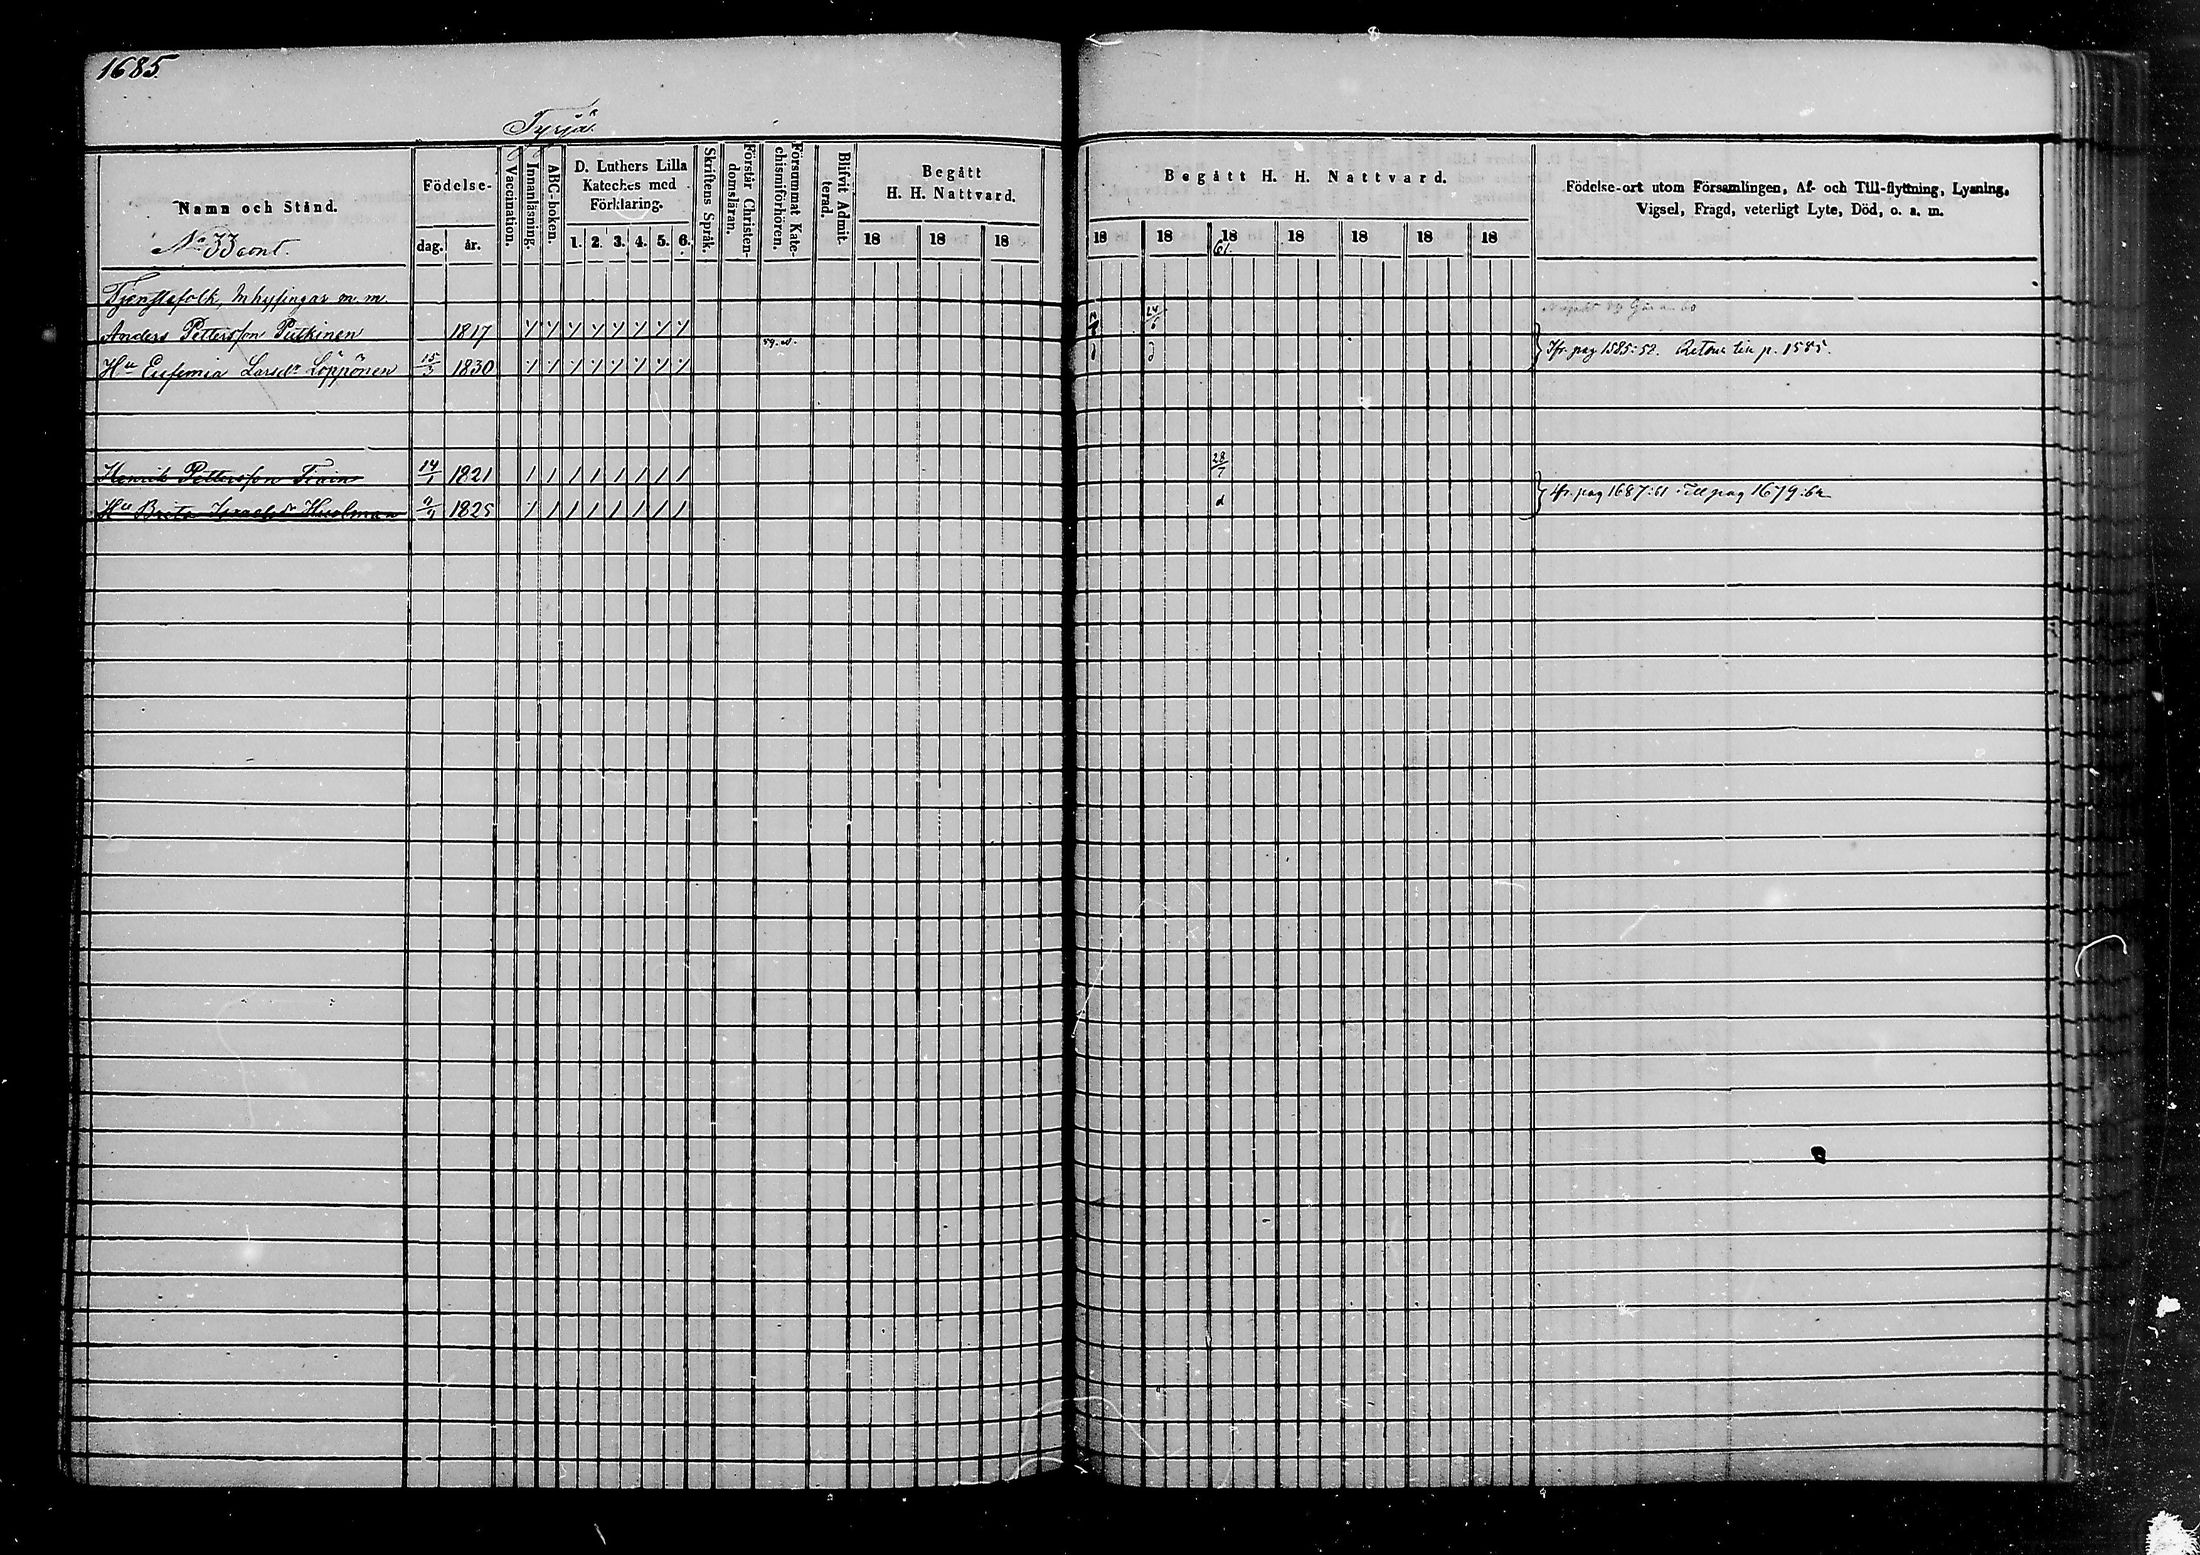 1685.
Tyrjä
Namn och Stånd.
Födelse-
dag. år.
Vaccination.
Innanläsning.
ABC-boken.
D. Luthers Lilla
Kateches med
Förklaring.
1. 2. 3. 4. 5. 6.
Skriftens Språk.
Förstår Christen-
domsläran.
Försummat Kate-
chismiförhören.
Blifvit Admit-
terad.
Begått
H. H. Nattvard.
18 18 18
Begått H. H. Nattvard.
18 18 18 61. 18 18 18 18
Födelse-ort utom Församlingen, Af- och Till-flyttning, Lysning,
Vigsel, Frägd, veterligt Lyte, Död, o. s. m.
No 33 cont.
Tjenstefolk, Inhysingar m. m.
Anders Pettersson Putkinen 1817 24/6
59.
Hu Eufemia Larsdr Löppönen 15/3 1830
Ifr. pag 1585:52. Retour till p. 1585.
Henrik Pettersson 14/1 1821 28/7
Hu Brita 1825 d
Ifr. pag 1687:61 Till pag 1679:62